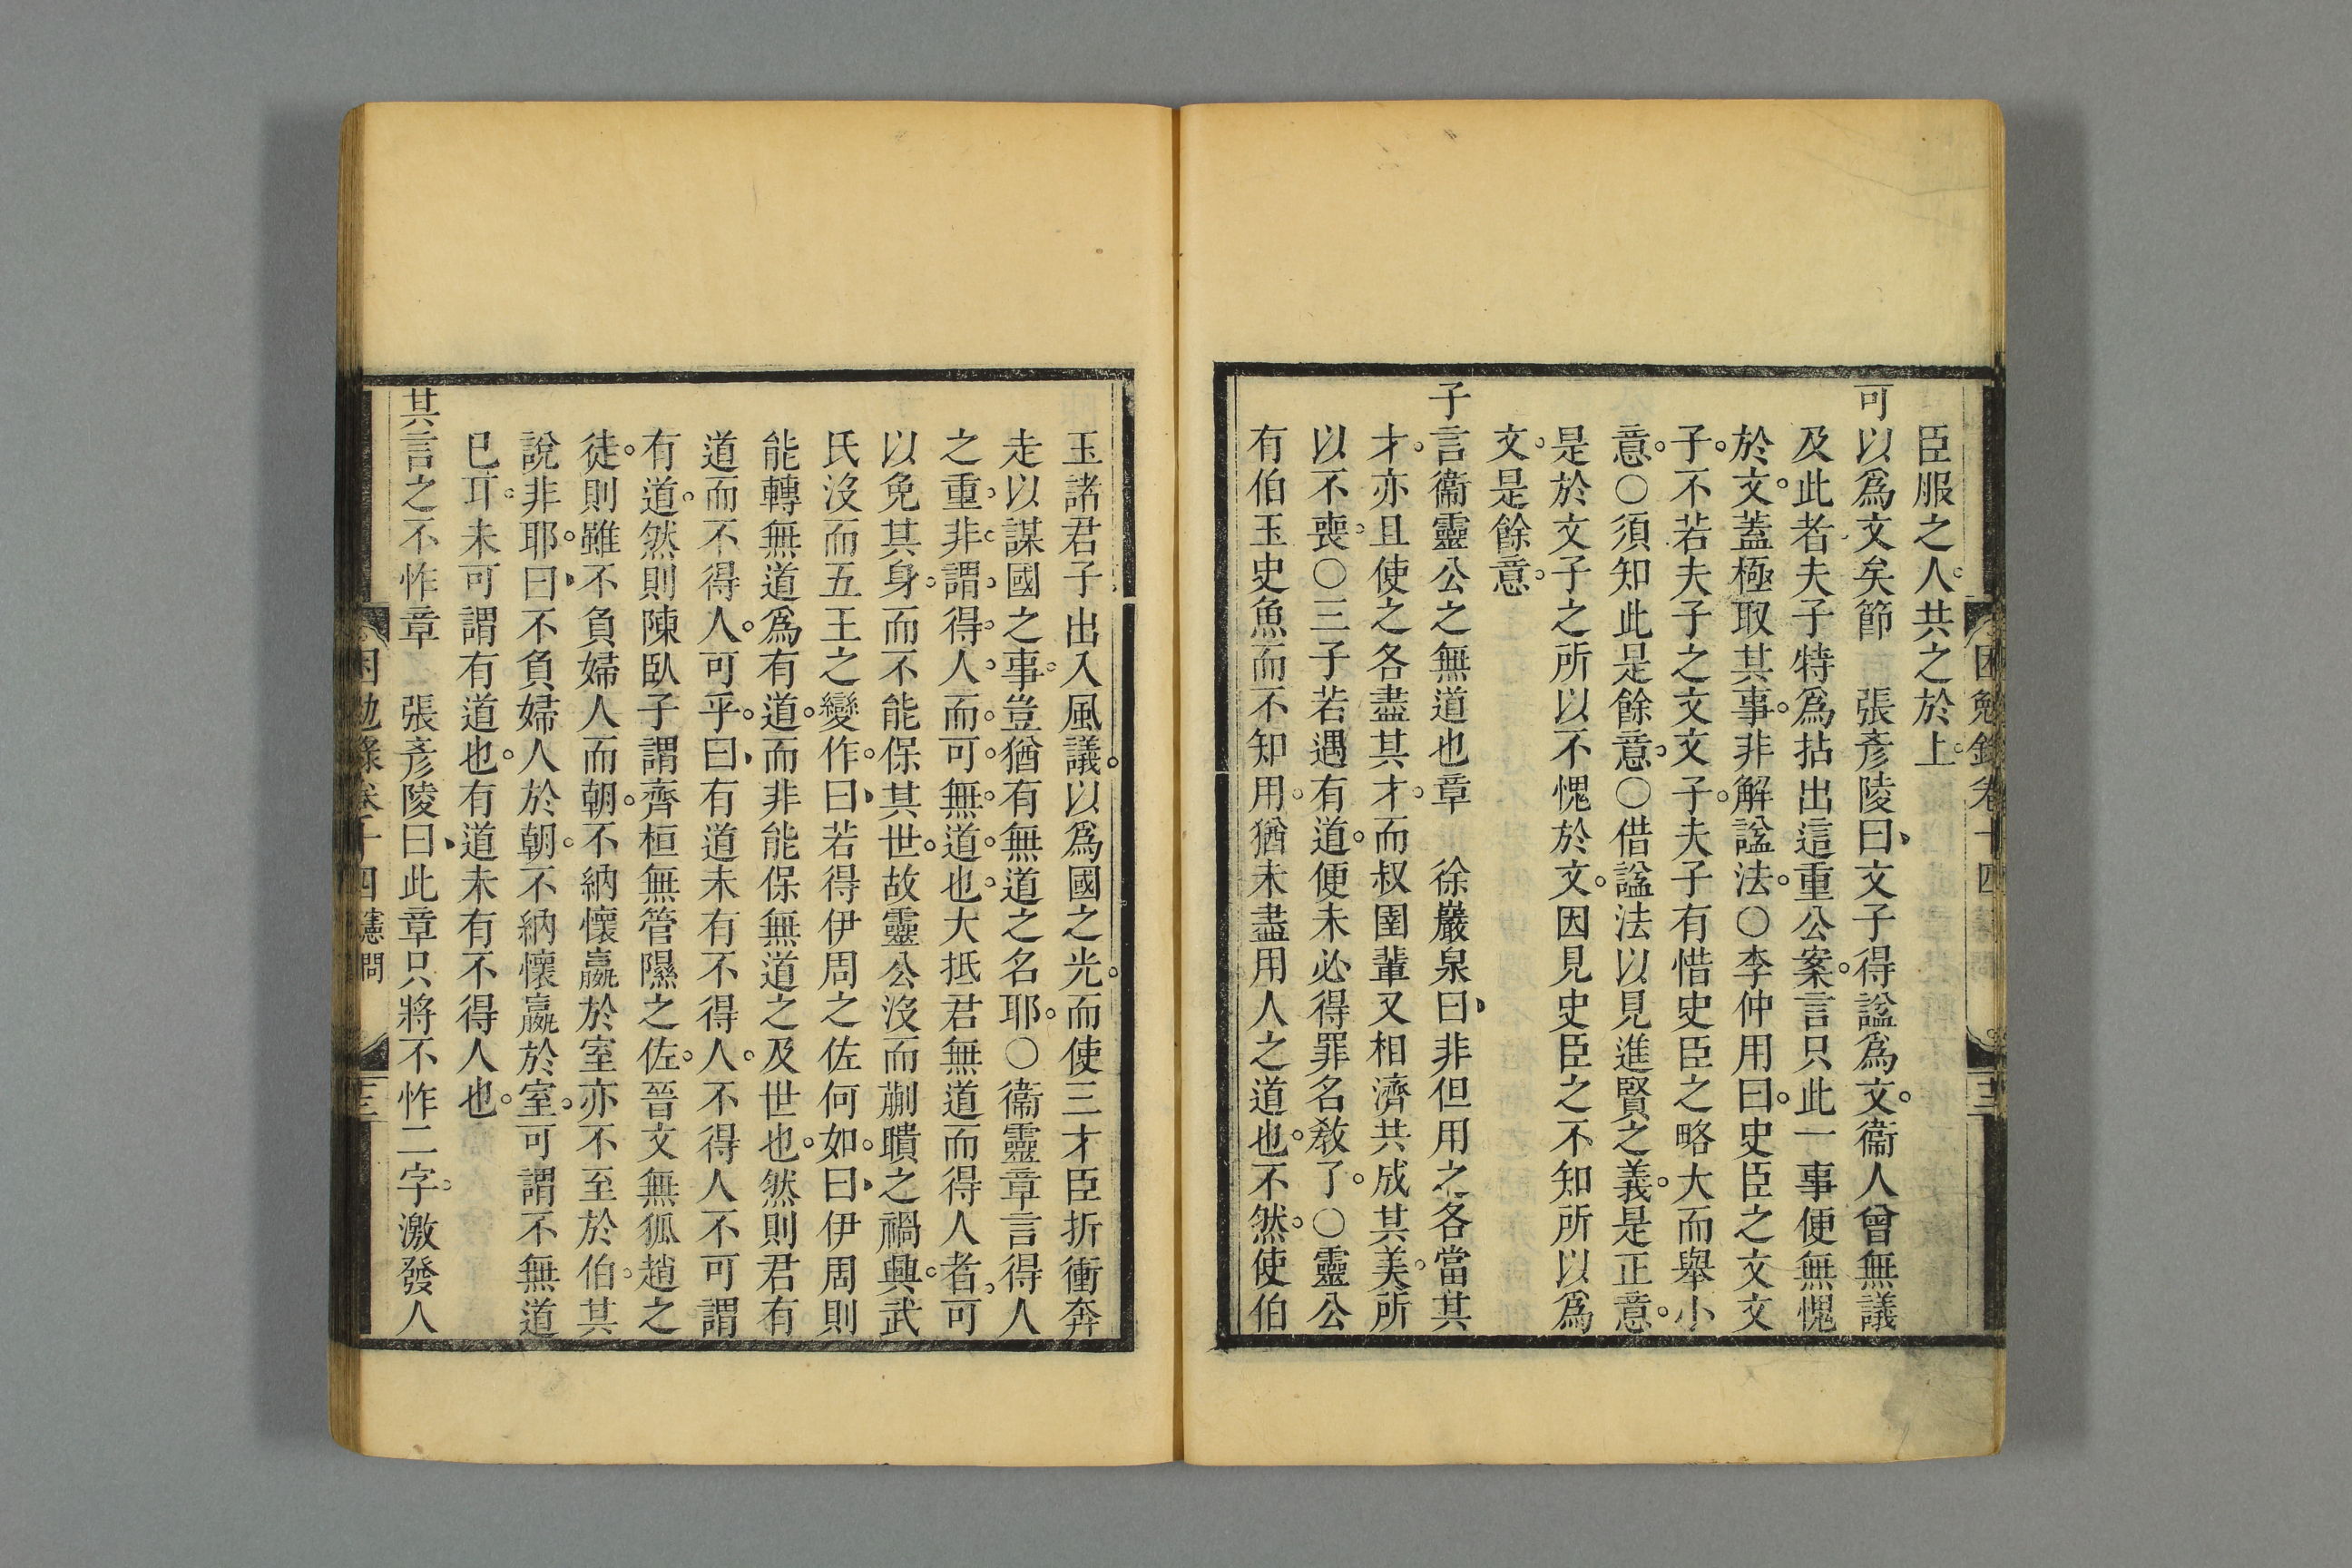 臣服之人共之於上
可以爲文矣節　張彥陵曰文子得諡爲文衞人曾無議
及此者夫子特爲拈出這重公案言只此一事便無愧
於文蓋極取其事非解諡法○李仲用曰史臣之文文
子不若夫子之文文子夫子有惜史臣之略大而舉小
意○須知此是餘意○借諡法以見進賢之義是正意
是於文子之所以不愧於文因見史臣之不知所以爲
文是餘意
子言衞靈公之無道也章　徐巖泉曰非但用之各當其
才亦且使之各盡其才而叔圉輩又相濟共成其美所
以不喪○三子若遇有道便未必得罪名教了○靈公
有伯玉史魚而不知用猶未盡用人之道也不然使伯
玉諸君子出入風議以爲國之光而使三才臣折衝奔
走以謀國之事豈猶有無道之名耶○衞靈章言得人
之重非謂得人而可無道也大抵君無道而得人者可
以免其身而不能保其世故靈公沒而蒯聵之禍興武
氏沒而五王之變作曰若得伊周之佐何如曰伊周則
能轉無道爲有道而非能保無道之及世也然則君有
道而不得人可乎曰有道未有不得人不得人不可謂
有道然則陳臥子謂齊桓無管隰之佐晉文無狐趙之
徒則雖不負婦人而朝不納懷嬴於室亦不至於伯其
說非耶曰不負婦人於朝不納懷嬴於室可謂不無道
已耳未可謂有道也有道未有不得人也
其言之不怍章　張彥陵曰此章只將不怍二字激發人
困勉錄卷十四憲問　三